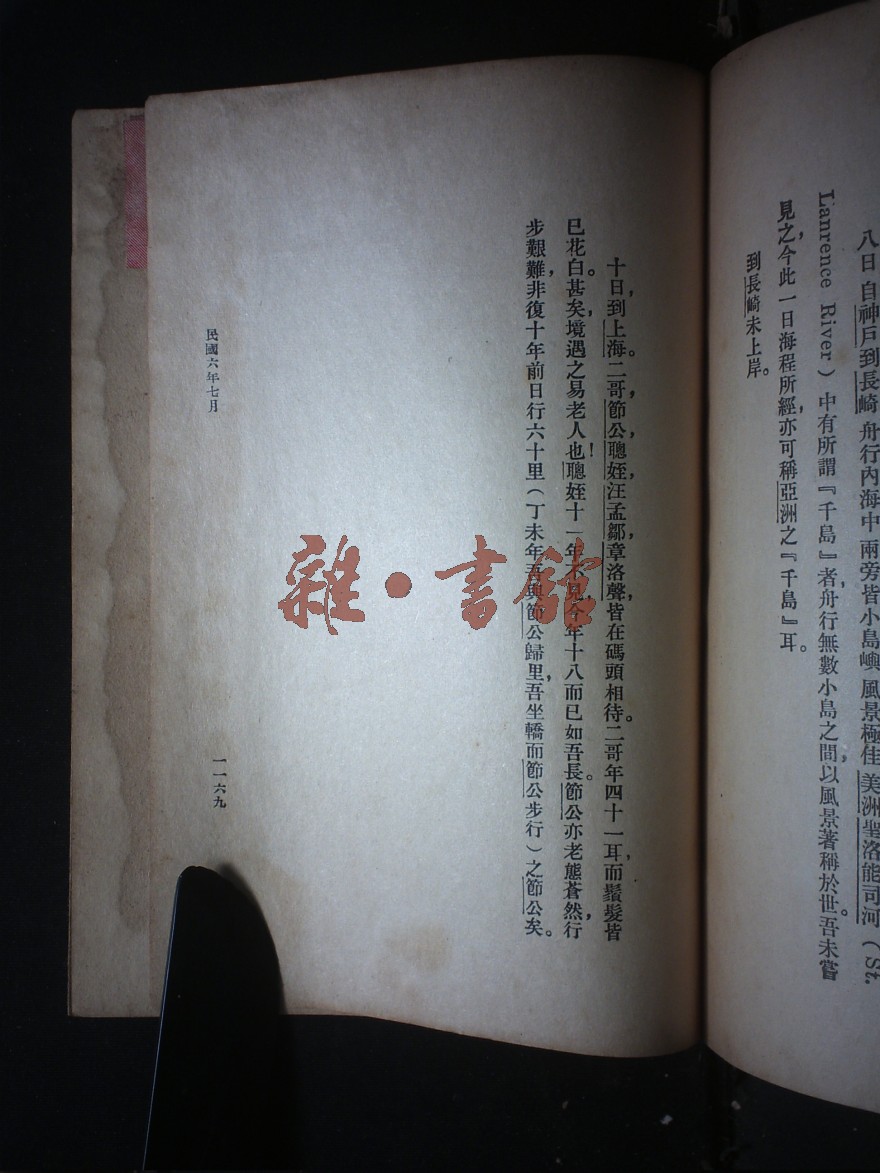 八日自神戶到長崎舟行內海中兩旁皆小島嶼風景極佳美洲聖洛能司河（St.
Lanrence River）中有所謂『千島』者，舟行無數小島之間，以風景著稱於世。吾未嘗
見之，今此一日海程所經，亦可稱亞洲之『千島』耳。
到長崎未上岸。
十日，到上海。二哥，節公，聰姪，汪孟鄒，章洛聲，皆在碼頭相待。二哥年四十一耳，而鬚髮皆
已花白。甚矣，境遇之易老人也！聰姪十一年不見，今年十八而已如吾長。節公亦老態蒼然，行
步艱難，非復十年前日行六十里（丁未年吾與節公歸里，吾坐轎而節公步行）之節公矣。
民國六年七月
一一六九
雜·書館